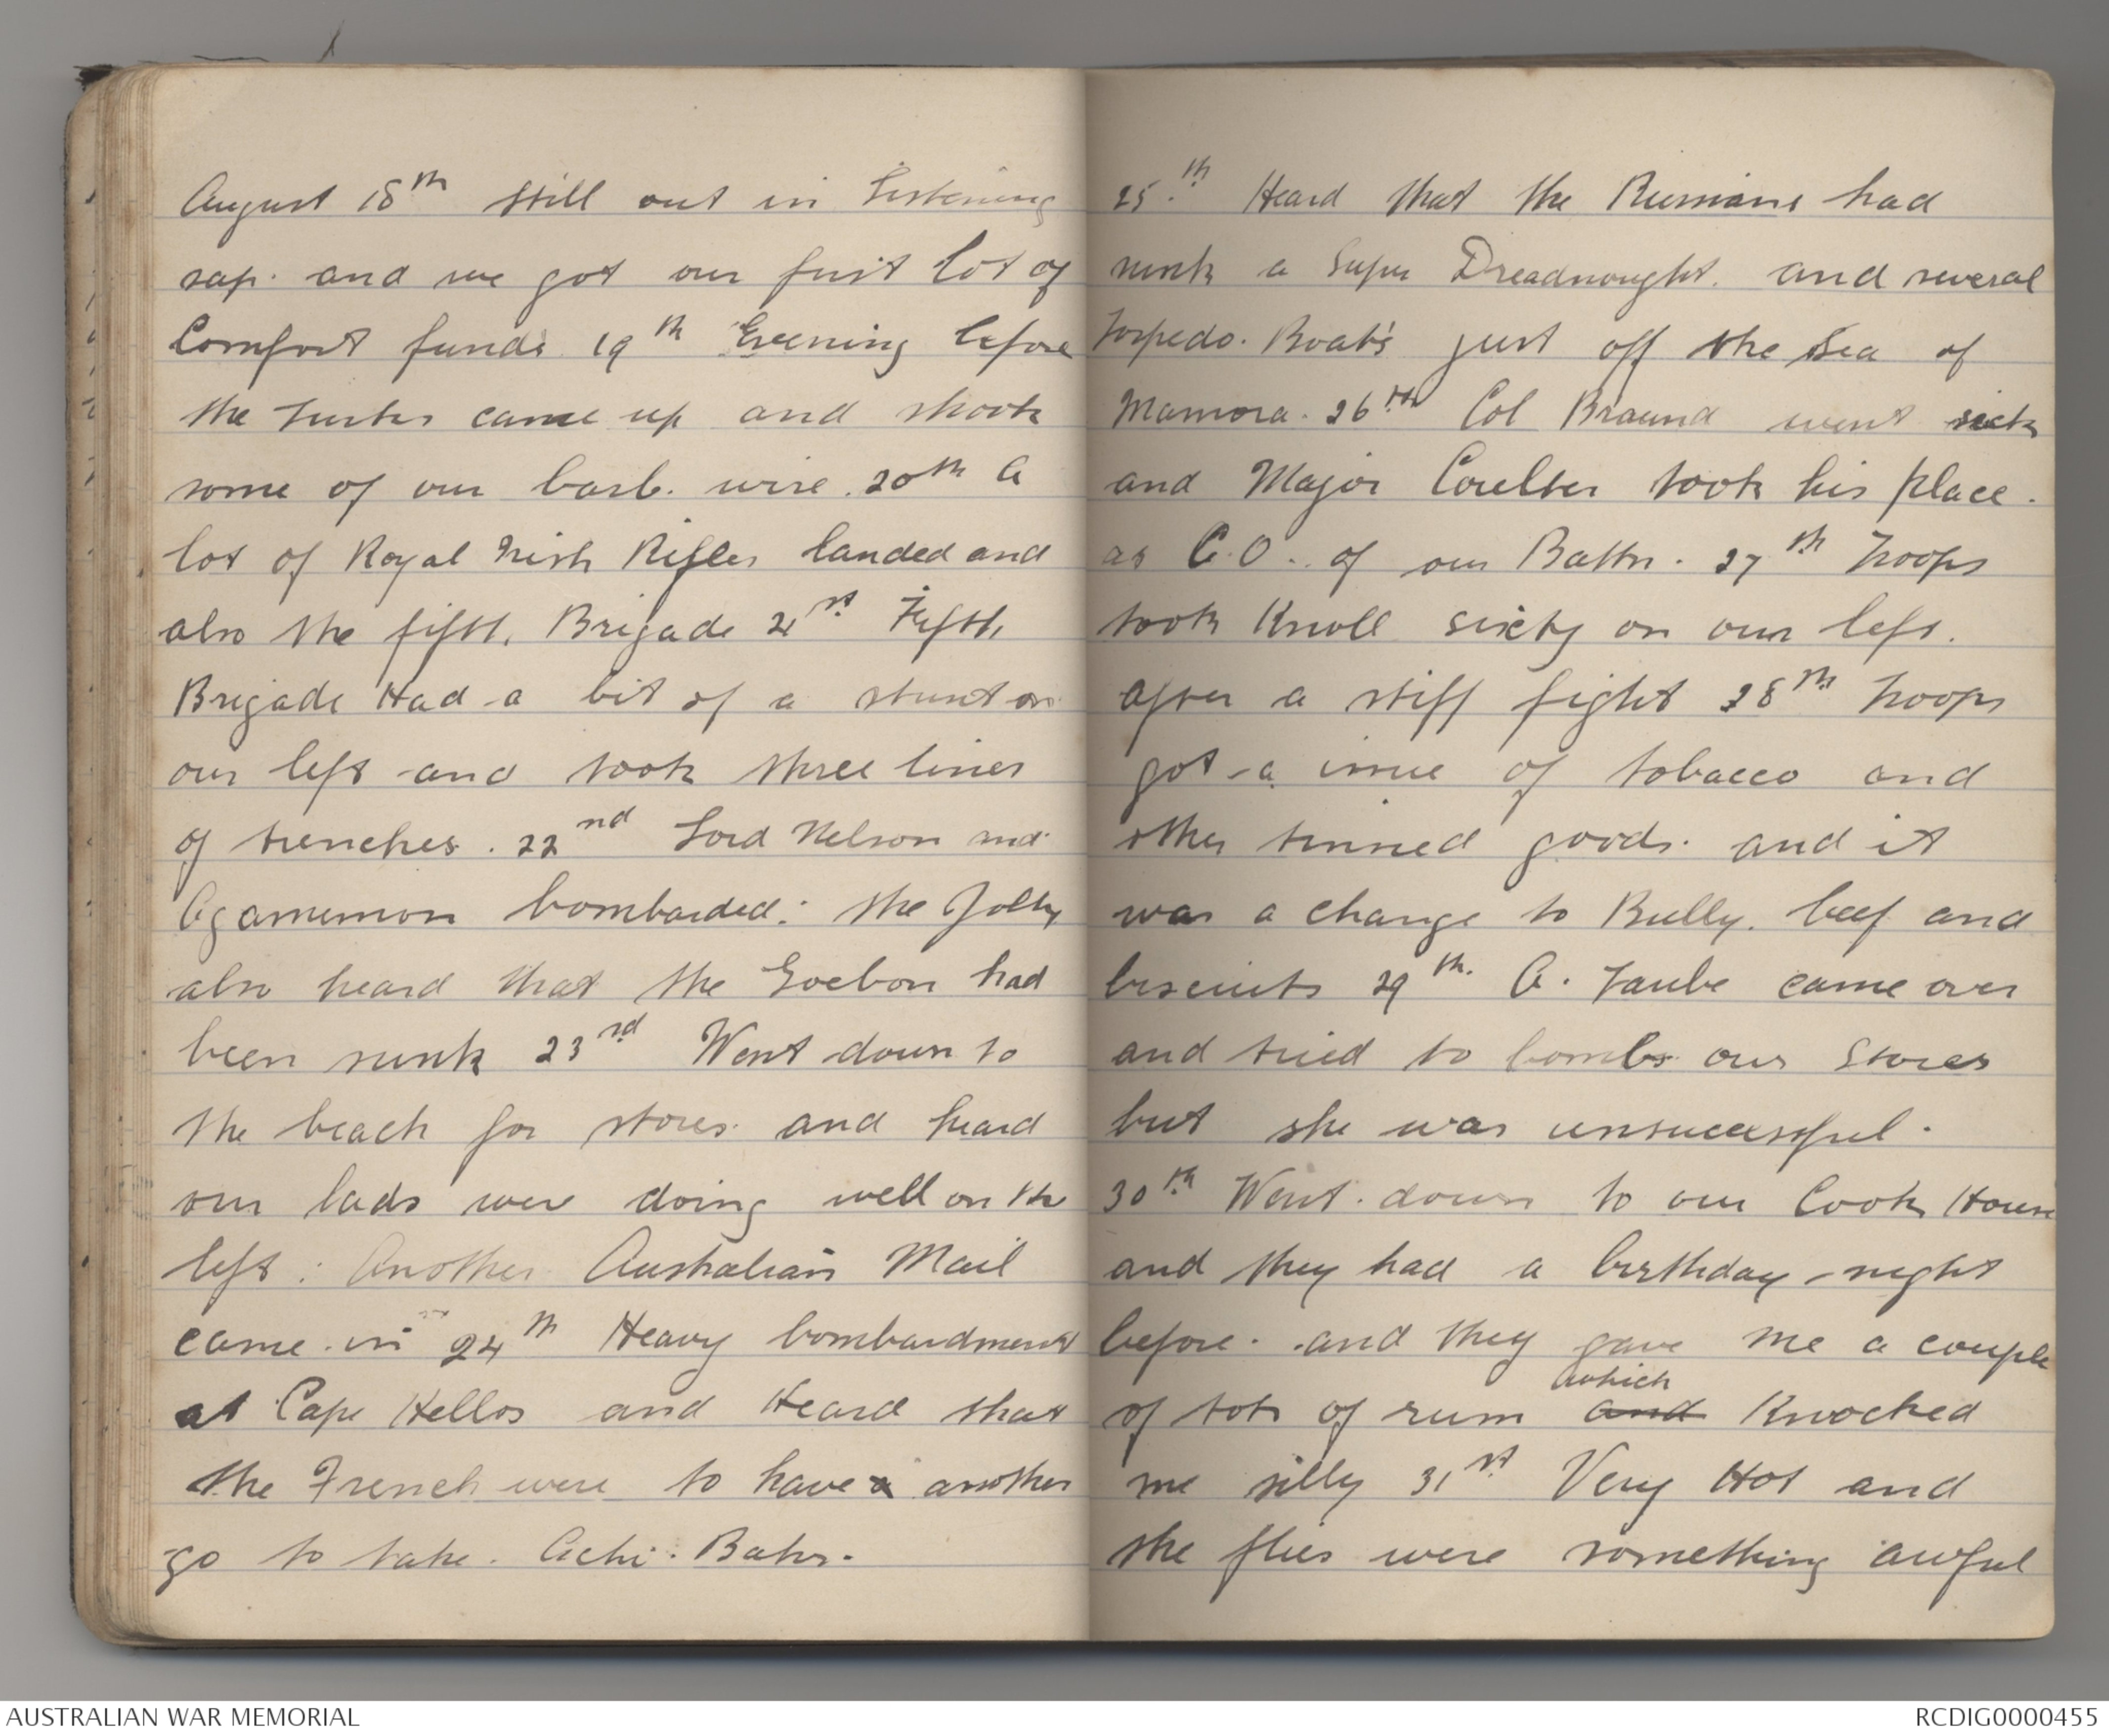 August 18th still out in Listening
sap. and we got our first lot of
Comfort funds 19th Evening before
the Turks came up and shook
some of our barb. wire. 20th A
lot of Royal Irish Rifles landed and
also the fifth. Brigade 21st Fifth
Brigade Had a bit of a stunt on
our left and took three lines
of trenches. 22nd Lord Nelson and
Agamemnon bombarded: the Jolly
also heard that the Goebon had
been sunk 23rd Went down to
the beach for stores. and heard
our lads were doing well on the
left: Another Australian Mail
came in 24th Heavy bombardment
at Cape Hellos and Heard that
the French were to have a another
go to take. Achi. Baba.
25.th Heard that the Russians had
sunk a Super Dreadnought. and several
Torpedo. Boat's just off the Sea of
Mamora. 26th Col Braund went sick
and Major Coulter took his place.
as C.O.. of our Battn. 27th Troops
took Knoll sixty on our left.
after a stiff fight 28th Troops
got a issue of tobacco and
other tinned goods. and it
was a change to Bully. beef and
biscuits 29th. A. Taube came over
and tried to bombs our Stores
but she was unsuccessful.
30th Went. down to our Cook House
and they had a birthday night
before. and they gave me a couple
of tots of rum and which Knocked
me silly 31st Very Hot and
the flies were something awful
AUSTRALIAN WAR MEMORIAL
RCDIG0000455